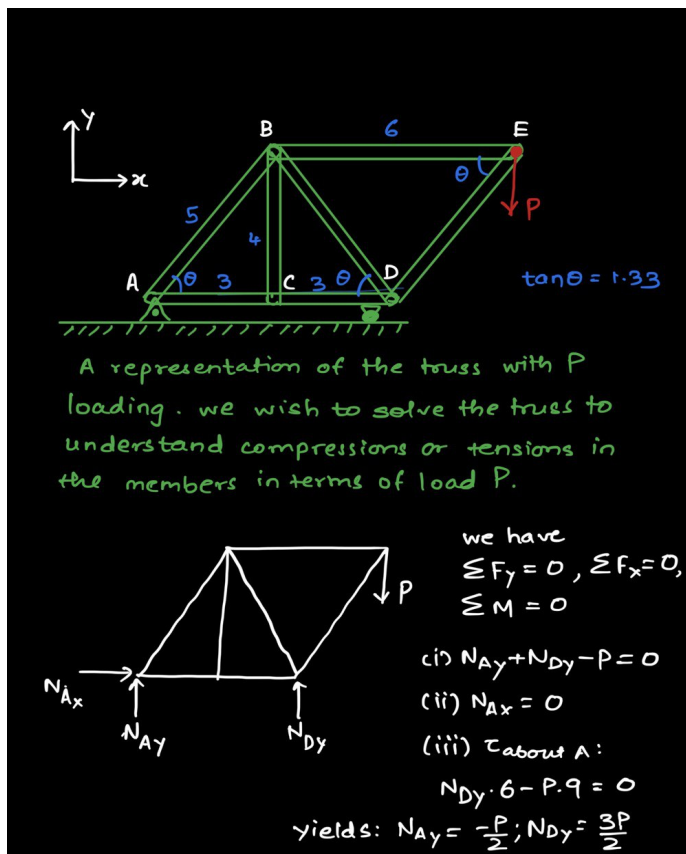 y
x
B
6
E
θ
P
5
4
A
θ
3
C
3
θ
D
tanθ = 1.33
A representation of the truss with P
loading. we wish to solve the truss to
understand compressions or tensions in
the members in terms of load P.
we have
ΣFy = 0, ΣFx = 0,
ΣM = 0
P
(i) NAy + NDy - P = 0
NAx
(ii) NAx = 0
NAy
NDy
(iii) τ about A:
NDy · 6 - P · 9 = 0
yields: NAy = -P/2 ; NDy = 3P/2